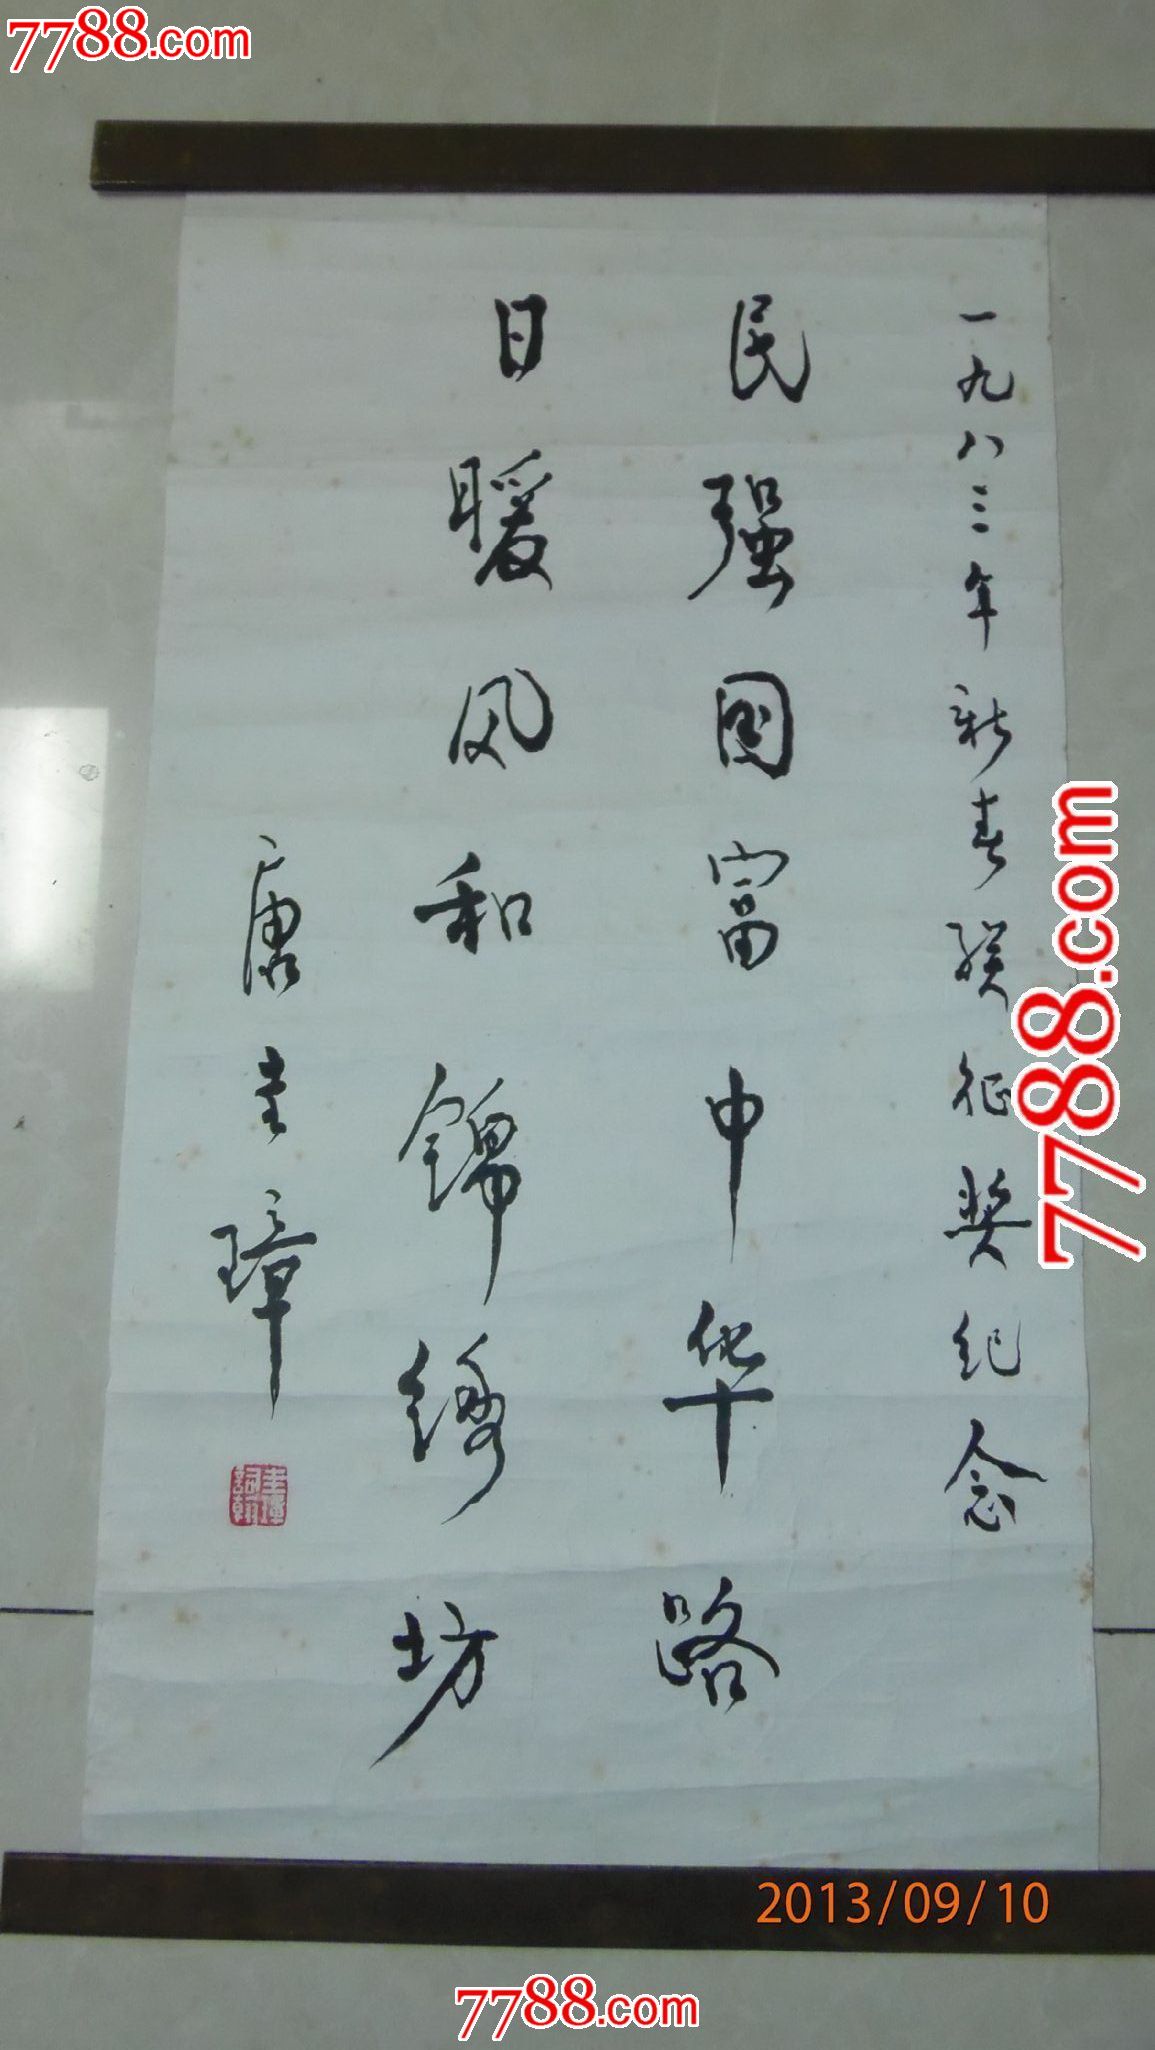 7788.com
一九八三年新春联征奖纪念
民强国富中华路
日暖风和锦绣坊
唐圭璋
7788.com
2013/09/10
7788.com